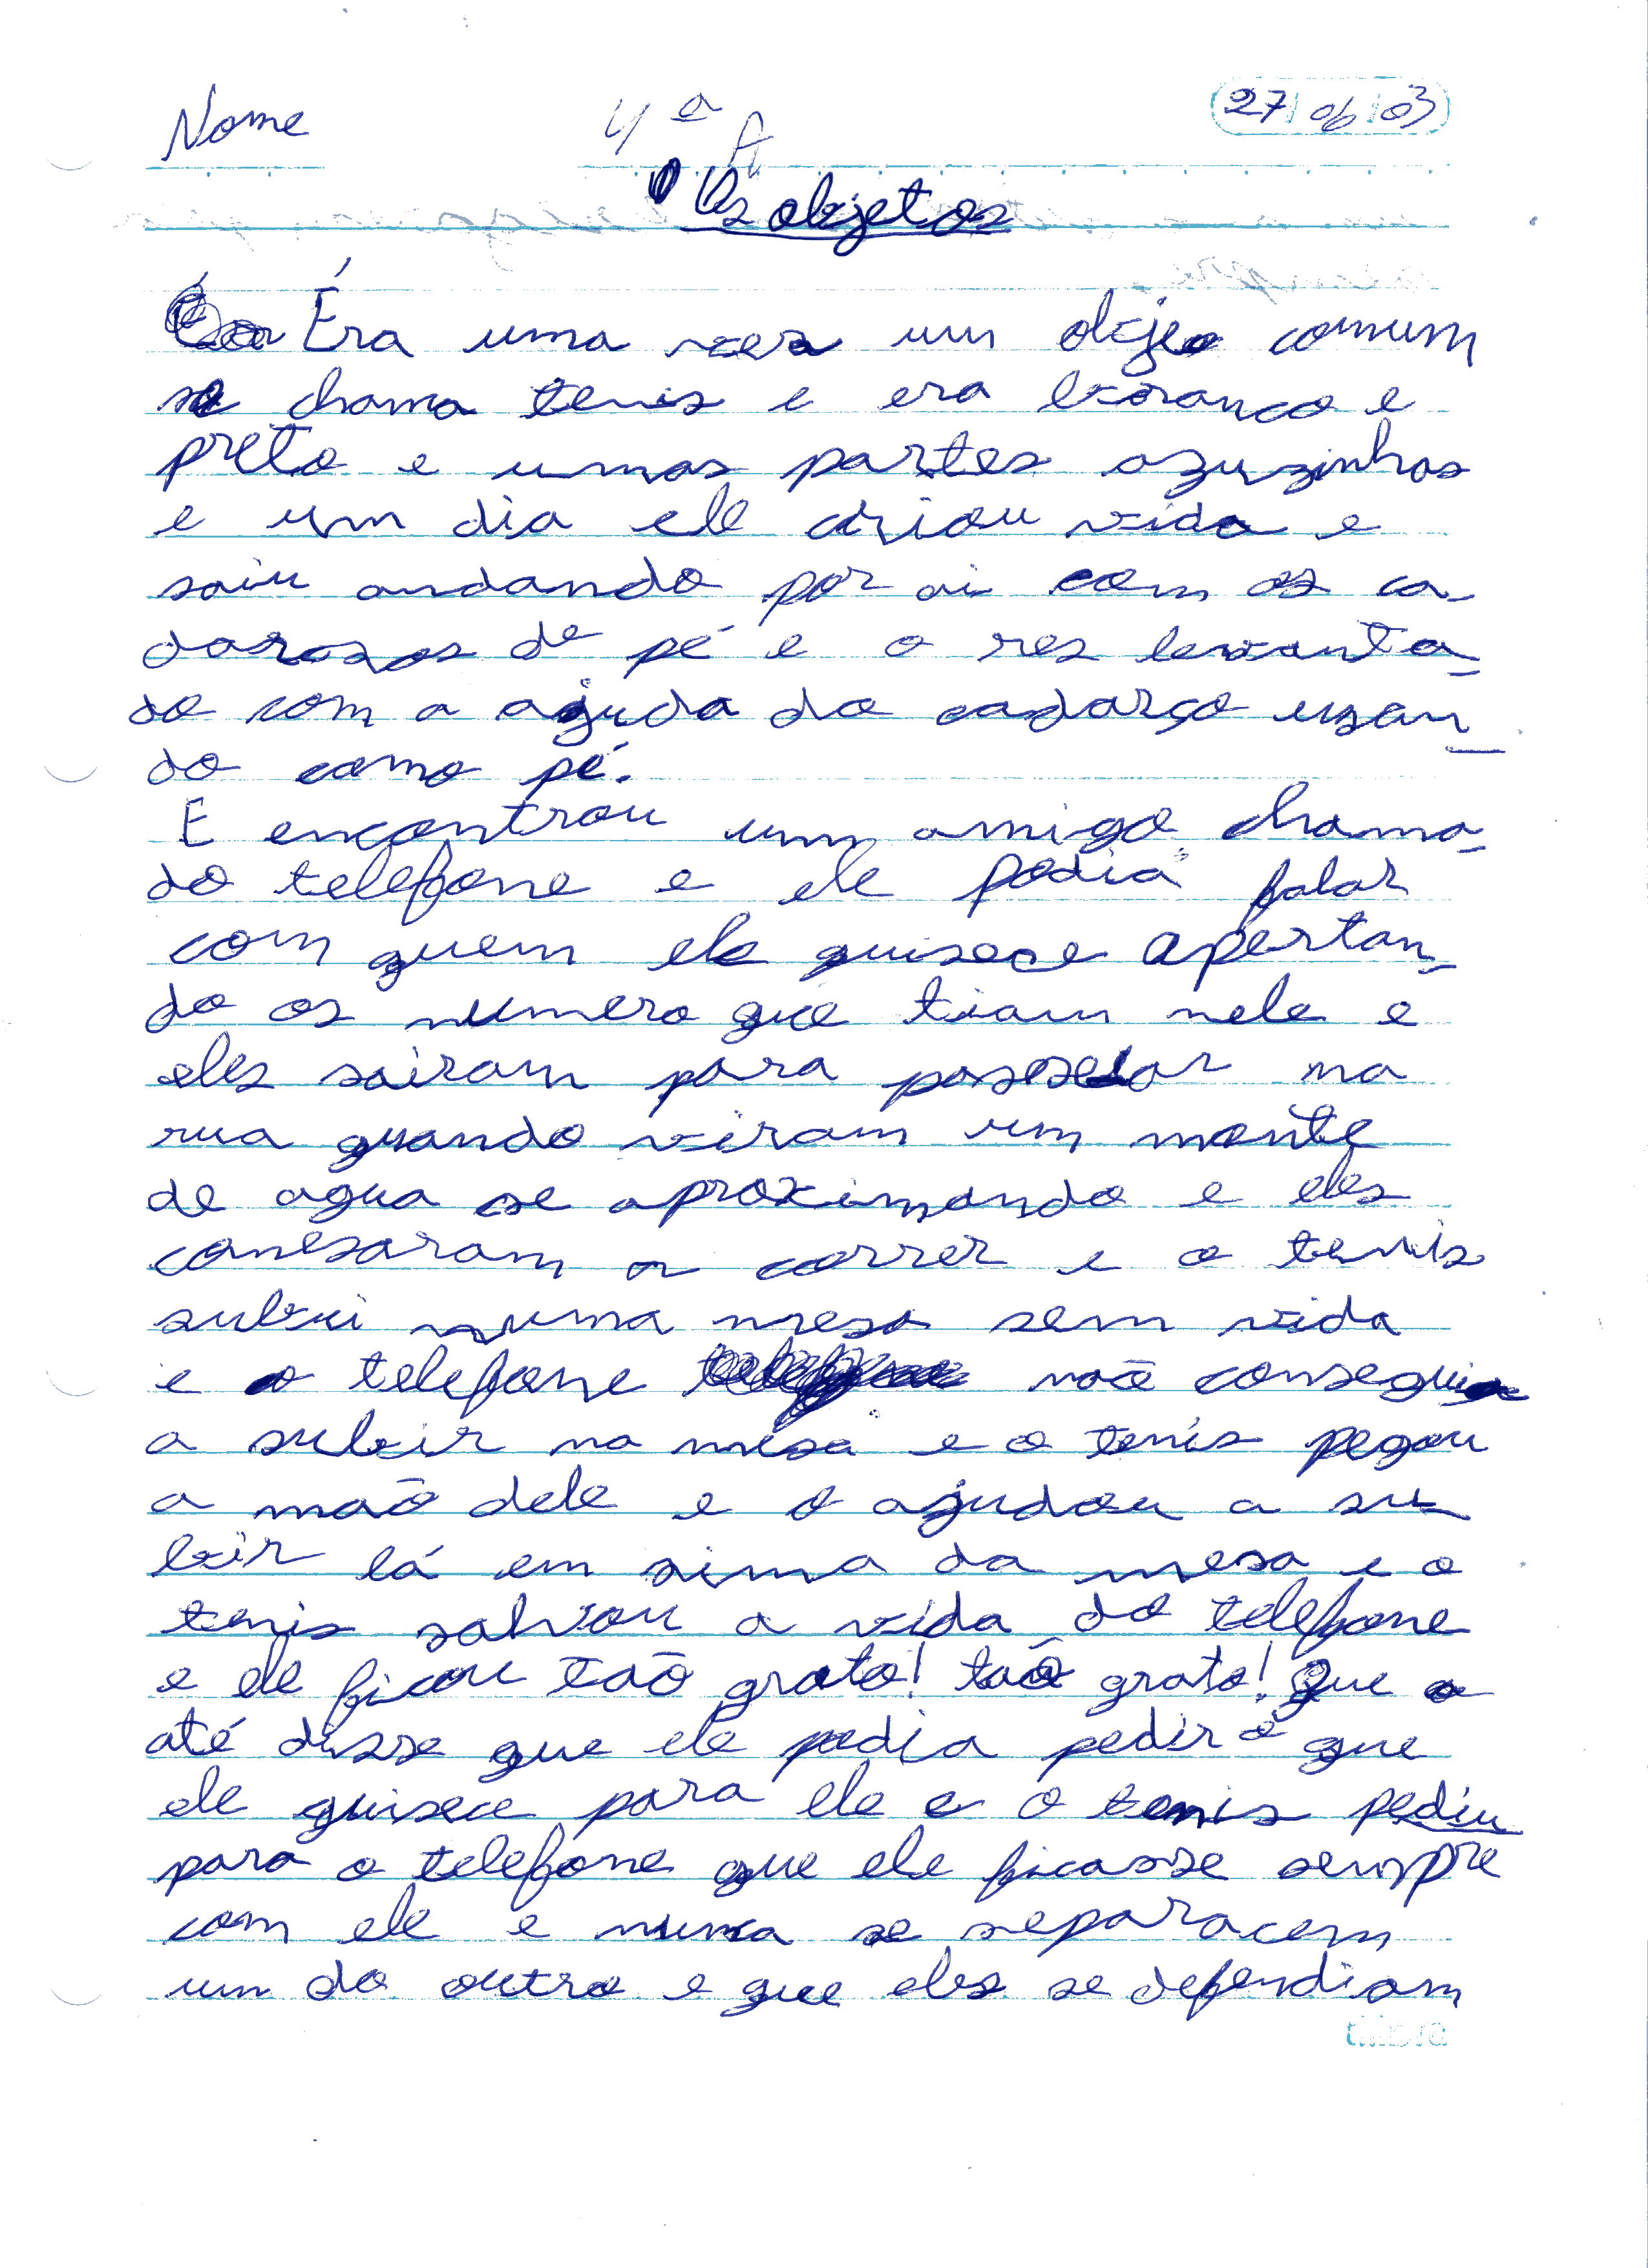 Nome 4ª A 27/06/03
Os objetos
Éra uma vez um objeo comum
se chama tenis e era branco e
preto e umas partes azuzinhas
e um dia ele criou vida e
saiu andando por ai com os ca-
darosos de pé e o res levanta-
do com a ajuda do cadarço usan-
do como pé.
E encontrou um amigo chama-
do telefone e ele podia falar
com quem ele quisece apertan-
do os numero que tiam nele e
eles sairam para passeiar na
rua quando viram um monte
de agua se aproximando e eles
comesaram a correr e o tenis
subiu numa mesa sem vida
e o telefone não consegui
a subir na mesa e o tenis pegou
a maõ dele e o ajudou a su-
bir lá em sima da mesa e o
tenis salvou a vida do telefone
e ele ficou taõ grato! taõ grato! Que
até disse que ele podia pedir o que
ele quisece para ele e o tenis pediu
para o telefone que ele ficasse sempre
com ele e nunca se separacem
um do outro e que eles se defendiam
tilibra